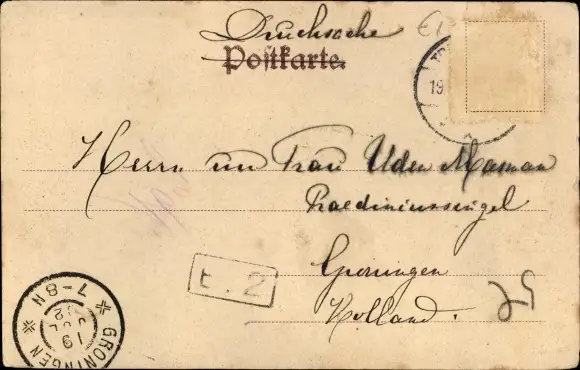 Drucksache
Postkarte.
19
Herrn un Frau Uden Masman
Praediniussingel
Groningen
Holland.
t. 2
GRONINGEN
7-8N
19 JUL 02